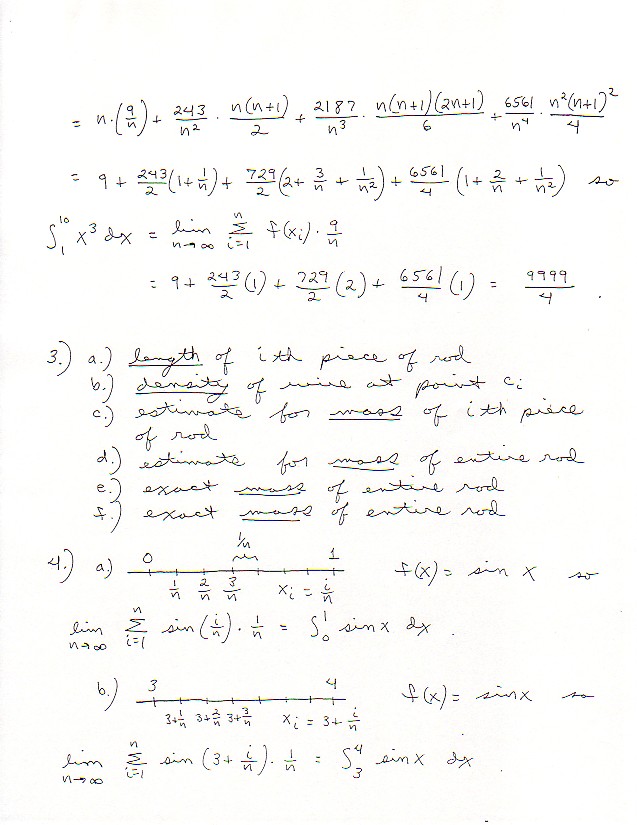 = n·(9/n) + 243/n² · n(n+1)/2 + 2187/n³ · n(n+1)(2n+1)/6 + 6561/n⁴ · n²(n+1)²/4
= 9 + 243/2 (1+1/n) + 729/2 (2+ 3/n + 1/n²) + 6561/4 (1+ 2/n + 1/n²) so
∫₁¹⁰ x³ dx = lim n→∞ Σ i=1 n f(xᵢ) · 9/n
= 9 + 243/2 (1) + 729/2 (2) + 6561/4 (1) = 9999/4 .
3.) a.) length of ith piece of rod
b.) density of wire at point cᵢ
c.) estimate for mass of ith piece
of rod
d.) estimate for mass of entire rod
e.) exact mass of entire rod
f.) exact mass of entire rod
4.) a.) 0 1/n 1 f(x) = sin x so
1/n 2/n 3/n xᵢ = i/n
lim n→∞ Σ i=1 n sin(i/n) · 1/n = ∫₀¹ sin x dx .
b.) 3 4 f(x) = sin x so
3+1/n 3+2/n 3+3/n xᵢ = 3+ i/n
lim n→∞ Σ i=1 n sin(3+ i/n) · 1/n = ∫₃⁴ sin x dx .